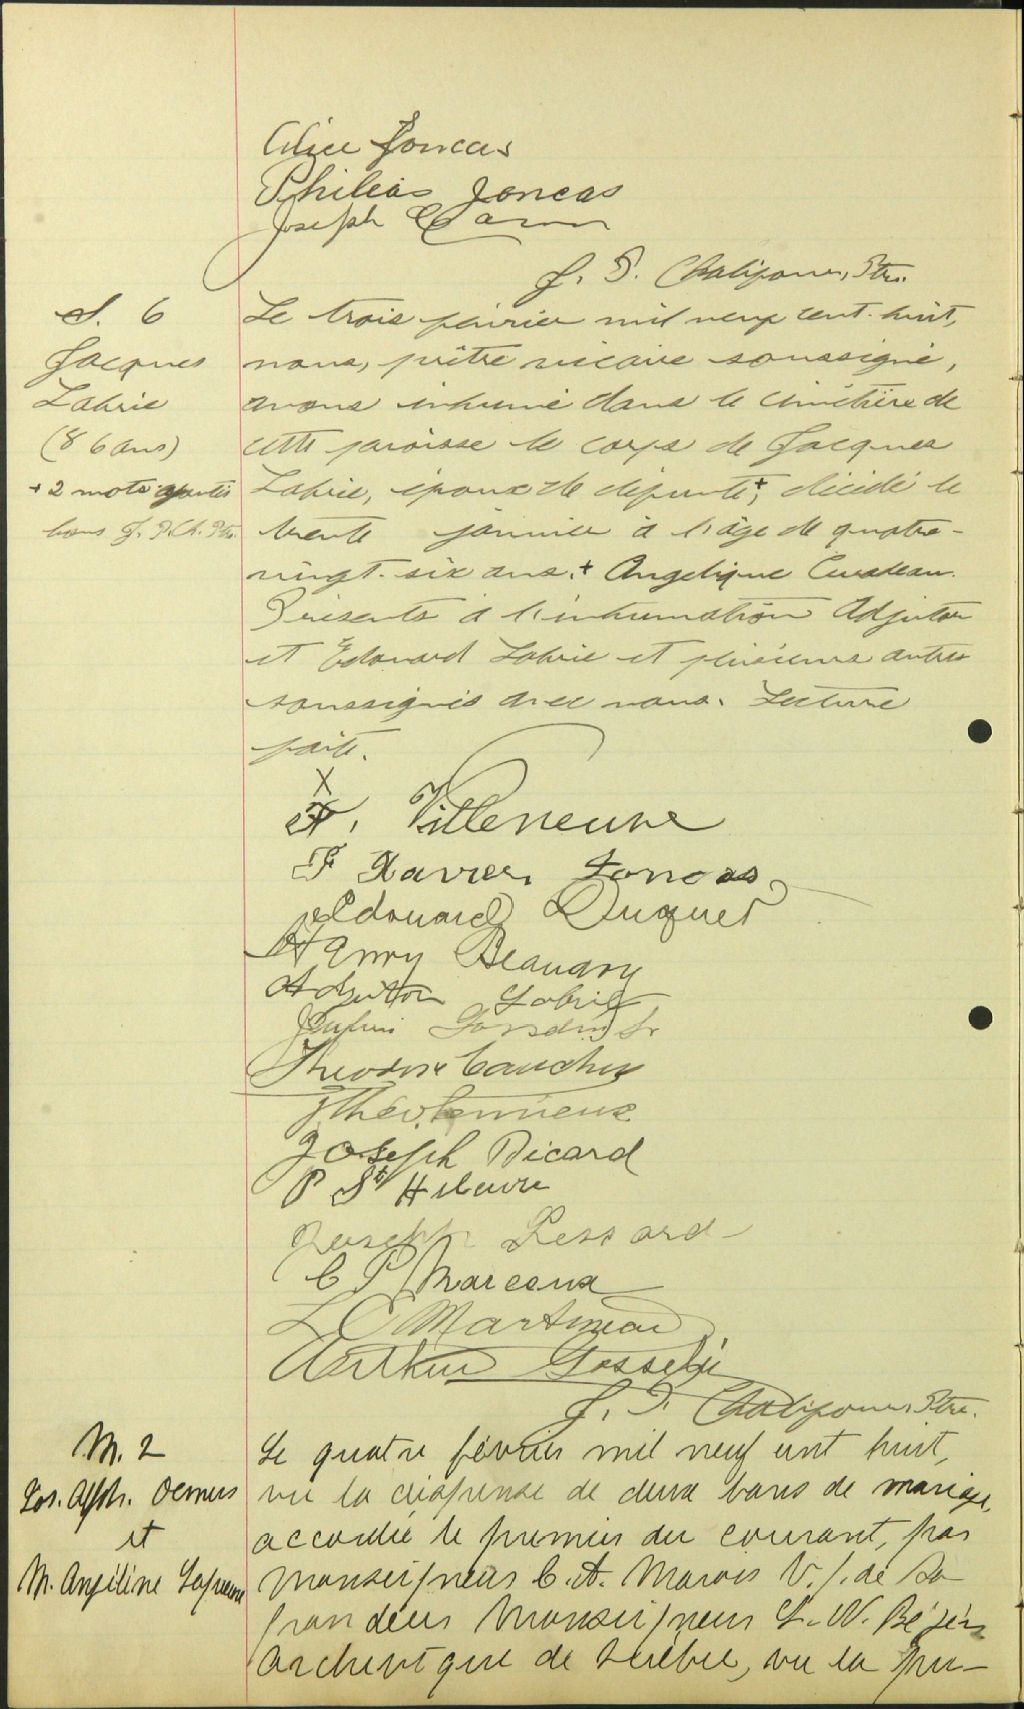 Alice Joncas
Philéas Joncas
Joseph
J. P. Chalifour, Ptre.
S. 6
Jacques
Labrie
(86 ans)
+ 2 mots ajoutés
bons J. P. Ch. Ptre.
Le trois février mil neuf cent huit,
nous, prêtre vicaire soussigné,
avons inhumé dans le cimetière de
cette paroisse le corps de Jacques
Labrie, époux de défunte +, décédé le
trente janvier à l'âge de quatre-
vingt-six ans. + Angelique
Présents à l'inhumation Adjutor
et Edouard Labrie et plusieurs autres
soussignés avec nous. Lecture
faite.
X
F. Villeneuve
F Xavier Joncas
Edouard Duquet
Henry
Adjutor Labrie
Theodore Cauchy
Théo. Lemieux
Joseph Picard
P St Hilaire
Joseph Lessard
C P Marceau
L C Martineau
Arthur Gosselin
J. P. Chalifour, Ptre.
M. 2
Jos. Alph. Demers
et
M. Angéline Lafrenée
Le quatre février mil neuf cent huit,
vu la dispense de deux bans de mariage,
accordée le premier du courant, par
Monseigneur C. A. Marois V. g. de Sa
Grandeur Monseigneur L. N. Bégin
Archevêque de Québec, vu la pu-